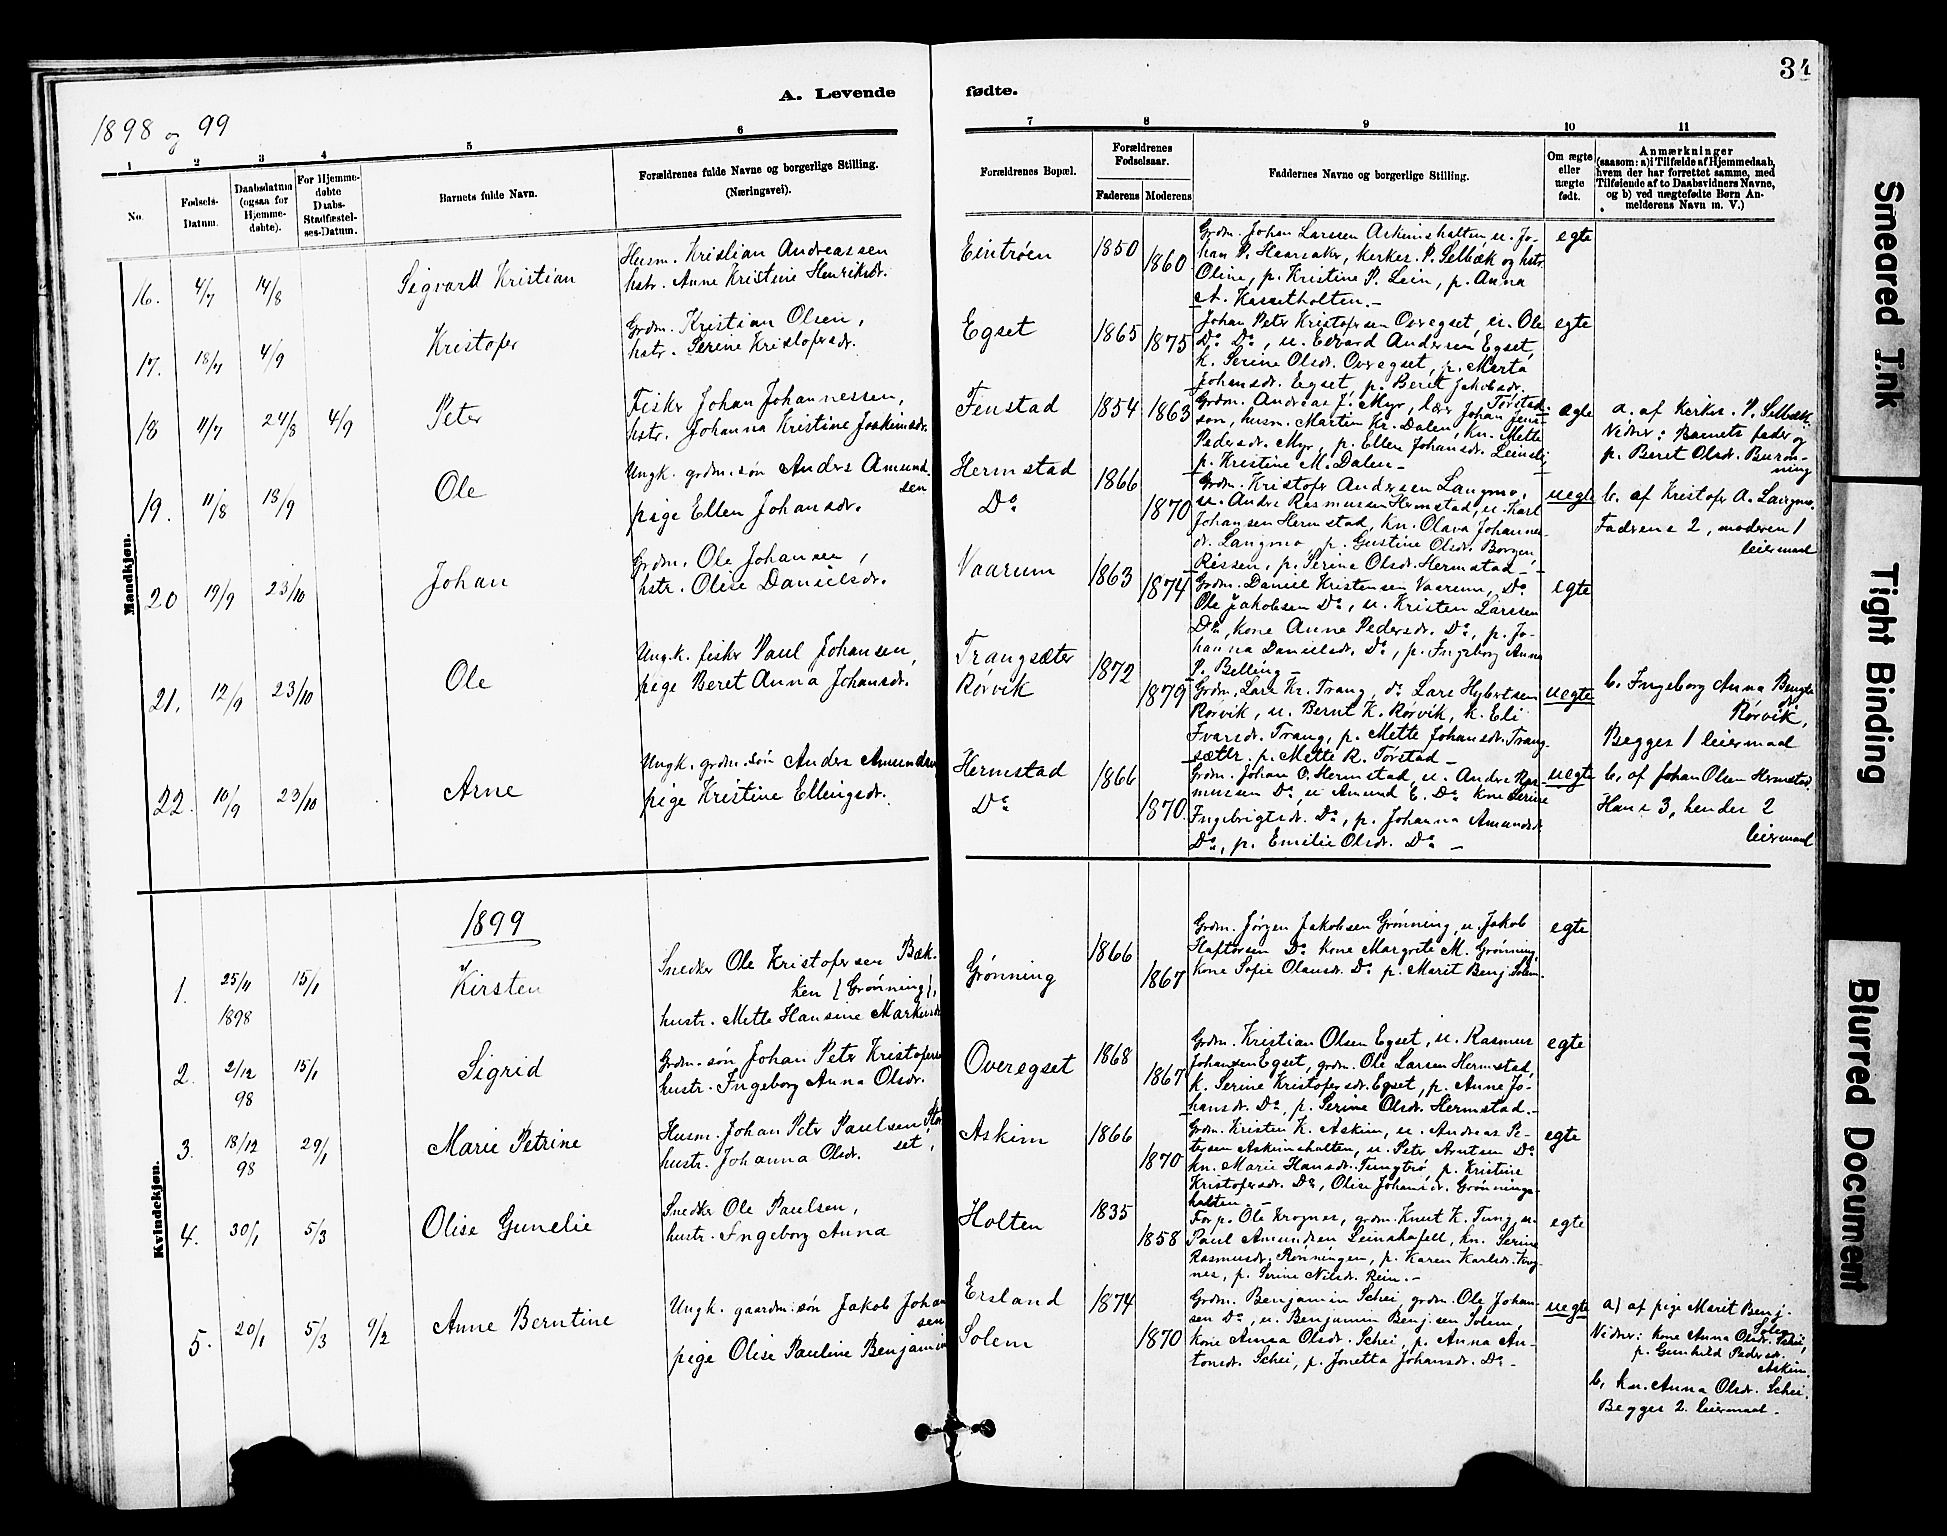 34
A. Levende fødte.
1898 og 99
1 2 3 4 5 6 7 8 9 10 11
No.
Fødsels-Datum.
Daabsdatum (ogsaa for Hjemme-døbte).
For Hjemme-døbte Daabs-Stadfæstel-ses-Datum.
Barnets fulde Navn.
Forældrenes fulde Navne og borgerlige Stilling. (Næringsvei).
Forældrenes Bopæl.
Forældrenes Fødselsaar.
Faderens Moderens
Faddernes Navne og borgerlige Stilling.
Om ægte eller uægte født.
Anmærkninger
(saasom: a) i Tilfælde af Hjemmedaab,
hvem der har forrettet samme, med
Tilføiende af to Daabsvidners Navne,
og b) ved uægtefødte Børn An-
melderens Navn m. V.)
Mandkjøn.
16. 4/7 14/8 Sigvard Kristian
Husm. Kristian Andreassen
hstr. Anne Kristine Henriksdr.
Eintrøen 1850 1860
Grdm. Johan Larssen Askimsholten, u. Jo-
han P. Hearaker, kirkes. P. Selbæk og hstr.
Oline, p. Kristine P. Lein, p. Anna
A. Kassetholten.-
egte
17. 18/7 4/9 Kristofer
Grdm. Kristian Olsen,
hstr. Serine Kristofersdr.
Egset 1865 1875
Johan Peter Kristofersen Overegset, u. Ole
Do Do, u. Edvard Andersen Egset,
k. Serine Olsdr. Overegset, p. Merta
Johansdr. Egset, p. Beret Jakobsdr.
Torstad
egte
18 11/7 24/8 4/9 Peter
Fisker Johan Johannessen,
hstr. Johanna Kristine Joakimsdr.
Fenstad 1854 1863
Grdm. Andreas J. Myr, lærer Johan Jens-
son, husm. Martin Kr. Dalen, kn. Mette
Pedersdr. Myr, p. Ellen Johansdr. Leinsli,
p. Kristine M. Dalen-
egte
a. af kirkes. P. Selbæk.
Vidner: Barnets fader og
p. Beret Olsdr. Burøn-
ning
19. 11/8 18/9 Ole
Ungk. grdm. søn Anders Amund-
sen
pige Ellen Johansdr.
Hermstad
Do
1866 1870
Grdm. Kristofer Andersen Langmo,
u. Andre Rasmussen Hermstad, u. Karl
Johansen Hermstad, kn. Olava Johannes-
dr. Langmo, p. Gustine Olsdr. Borgen,
Rissen, p. Serine Olsdr. Hermstad-
uegte
b. af Kristofer A. Langmo.
Faderens 2, moderen 1
leiermaal
20 19/9 23/10 Johan
Grdm. Ole Johansen,
hstr. Olise Danielsdr.
Vaarum 1863 1874
Grdm. Daniel Kristensen Vaarum, Do
Ole Jakobsen Do, u. Kristen Larssen
Do, kone Anne Pedersdr. Do, p. Jo-
hanna Danielsdr. Do, p. Ingeborg Anna
P. Belling-
egte
21. 12/9 23/10 Ole
Ungk. fisker Paul Johansen,
pige Beret Anna Johansdr.
Trangsæter
Rørvik
1872 1879
Grdm. Lars Kr. Trang, do Lars Hybertsen
Rørvik, u. Bernt K. Rørvik, k. Eli
Ivarsdr. Trang, p. Mette Johansdr. Trang-
sæter, p. Mette R. Torstad-
uegte
b. Ingeborg Anna Bengts
dr. Rørvik,
Begges 1 leiermaal
22. 10/9 23/10 Arne
Ungk. grdm.søn Anders Amundsen
pige Kristine Ellingsdr.
Hermstad
Do
1866 1870.
Grdm. Johan O. Hermstad, u. Andre Ras-
mussen Do, u. Amund E. Do kone Serine
Ingebrigtsdr. Do, p. Johanna Amundsdr.
Do, p. Emilie Olsdr. Do-
uegte
b. af Johan Olsen Hermstad.
Hans 3, hendes 2
leiermaal
Kvindekjøn.
1899
1. 25/11 1898 15/1 Kirsten
Snedker Ole Kristofersen Bæk-
ken (Grønning),
hustr. Mette Hansine Markusdr.
Grønning 1866 1867
Grdm. Jørgen Jakobsen Grønning, u. Jakob
Haftorsen Do kone Margrete M. Grønning,
kone Sofie Olausdr. Do p. Marit Benj. Solem.
egte
2. 2/12 98 15/1 Sigrid
Grdm.søn Johan Peter Kristofersen
hustr. Ingeborg Anna Olsdr.
Overegset 1868 1867
Grdm. Kristian Olsen Egset, u. Rasmus
Johansen Egset, grdm. Ole Larsen Hermstad,
k. Serine Kristofersdr. Egset, p. Anne Jo-
hansdr. Do, p. Serine Olsdr. Hermstad.-
egte
3. 18/12 98 29/1 Marie Petrine
Husm. Johan Peter Paulsen
set,
hustr. Johanna Olsdr.
Askim 1866 1870
Grdm. Kristen K. Askim, u. Andreas Pe-
tersen Askimsholten, u. Peter Arntsen Do
kn. Marie Hansdr. Tungtrø, p. Kristine
Kristofersdr. Do, Olise Johansdr. Grønnings-
holten.-
egte
4. 30/1 5/3 Olise Gunelie
Snedker Ole Paulsen,
hustr. Ingeborg Anna
Holten 1835 1858
Forp. Ole Krognes, grdm. Knut K. Tung, u.
Paul Amundsen Leinshafell, kn. Serine
Rasmusdr. Rønningen, p. Karen Karlsdr. Krog-
nes, p. Serine Nilsdr. Rein.-
egte
5. 20/1 5/3 9/2 Anne Berntine
Ungk. gaardm:søn Jakob Johan
sen
pige Olise Pauline Benjamin
Ersland
Solem
1874 1870
Grdm. Benjamin Schei grdm. Ole Johan-
sen Do, u. Benjamin Benj.sen Solem,
kone Anna Olsdr. Schei, p. Anna An-
tonsdr. Schei, p. Jonetta Johansdr. Do-
uegte
a) af pige Marit Benj.
Solem
Vidner: kone Anna Olsdr. Schei,
p. Gunhild Pedersdr.
Askim.
b, kn. Anna Olsdr. Schei.
Begges 2. leiermaal.
Smeared Ink
Tight Binding
Blurred Document